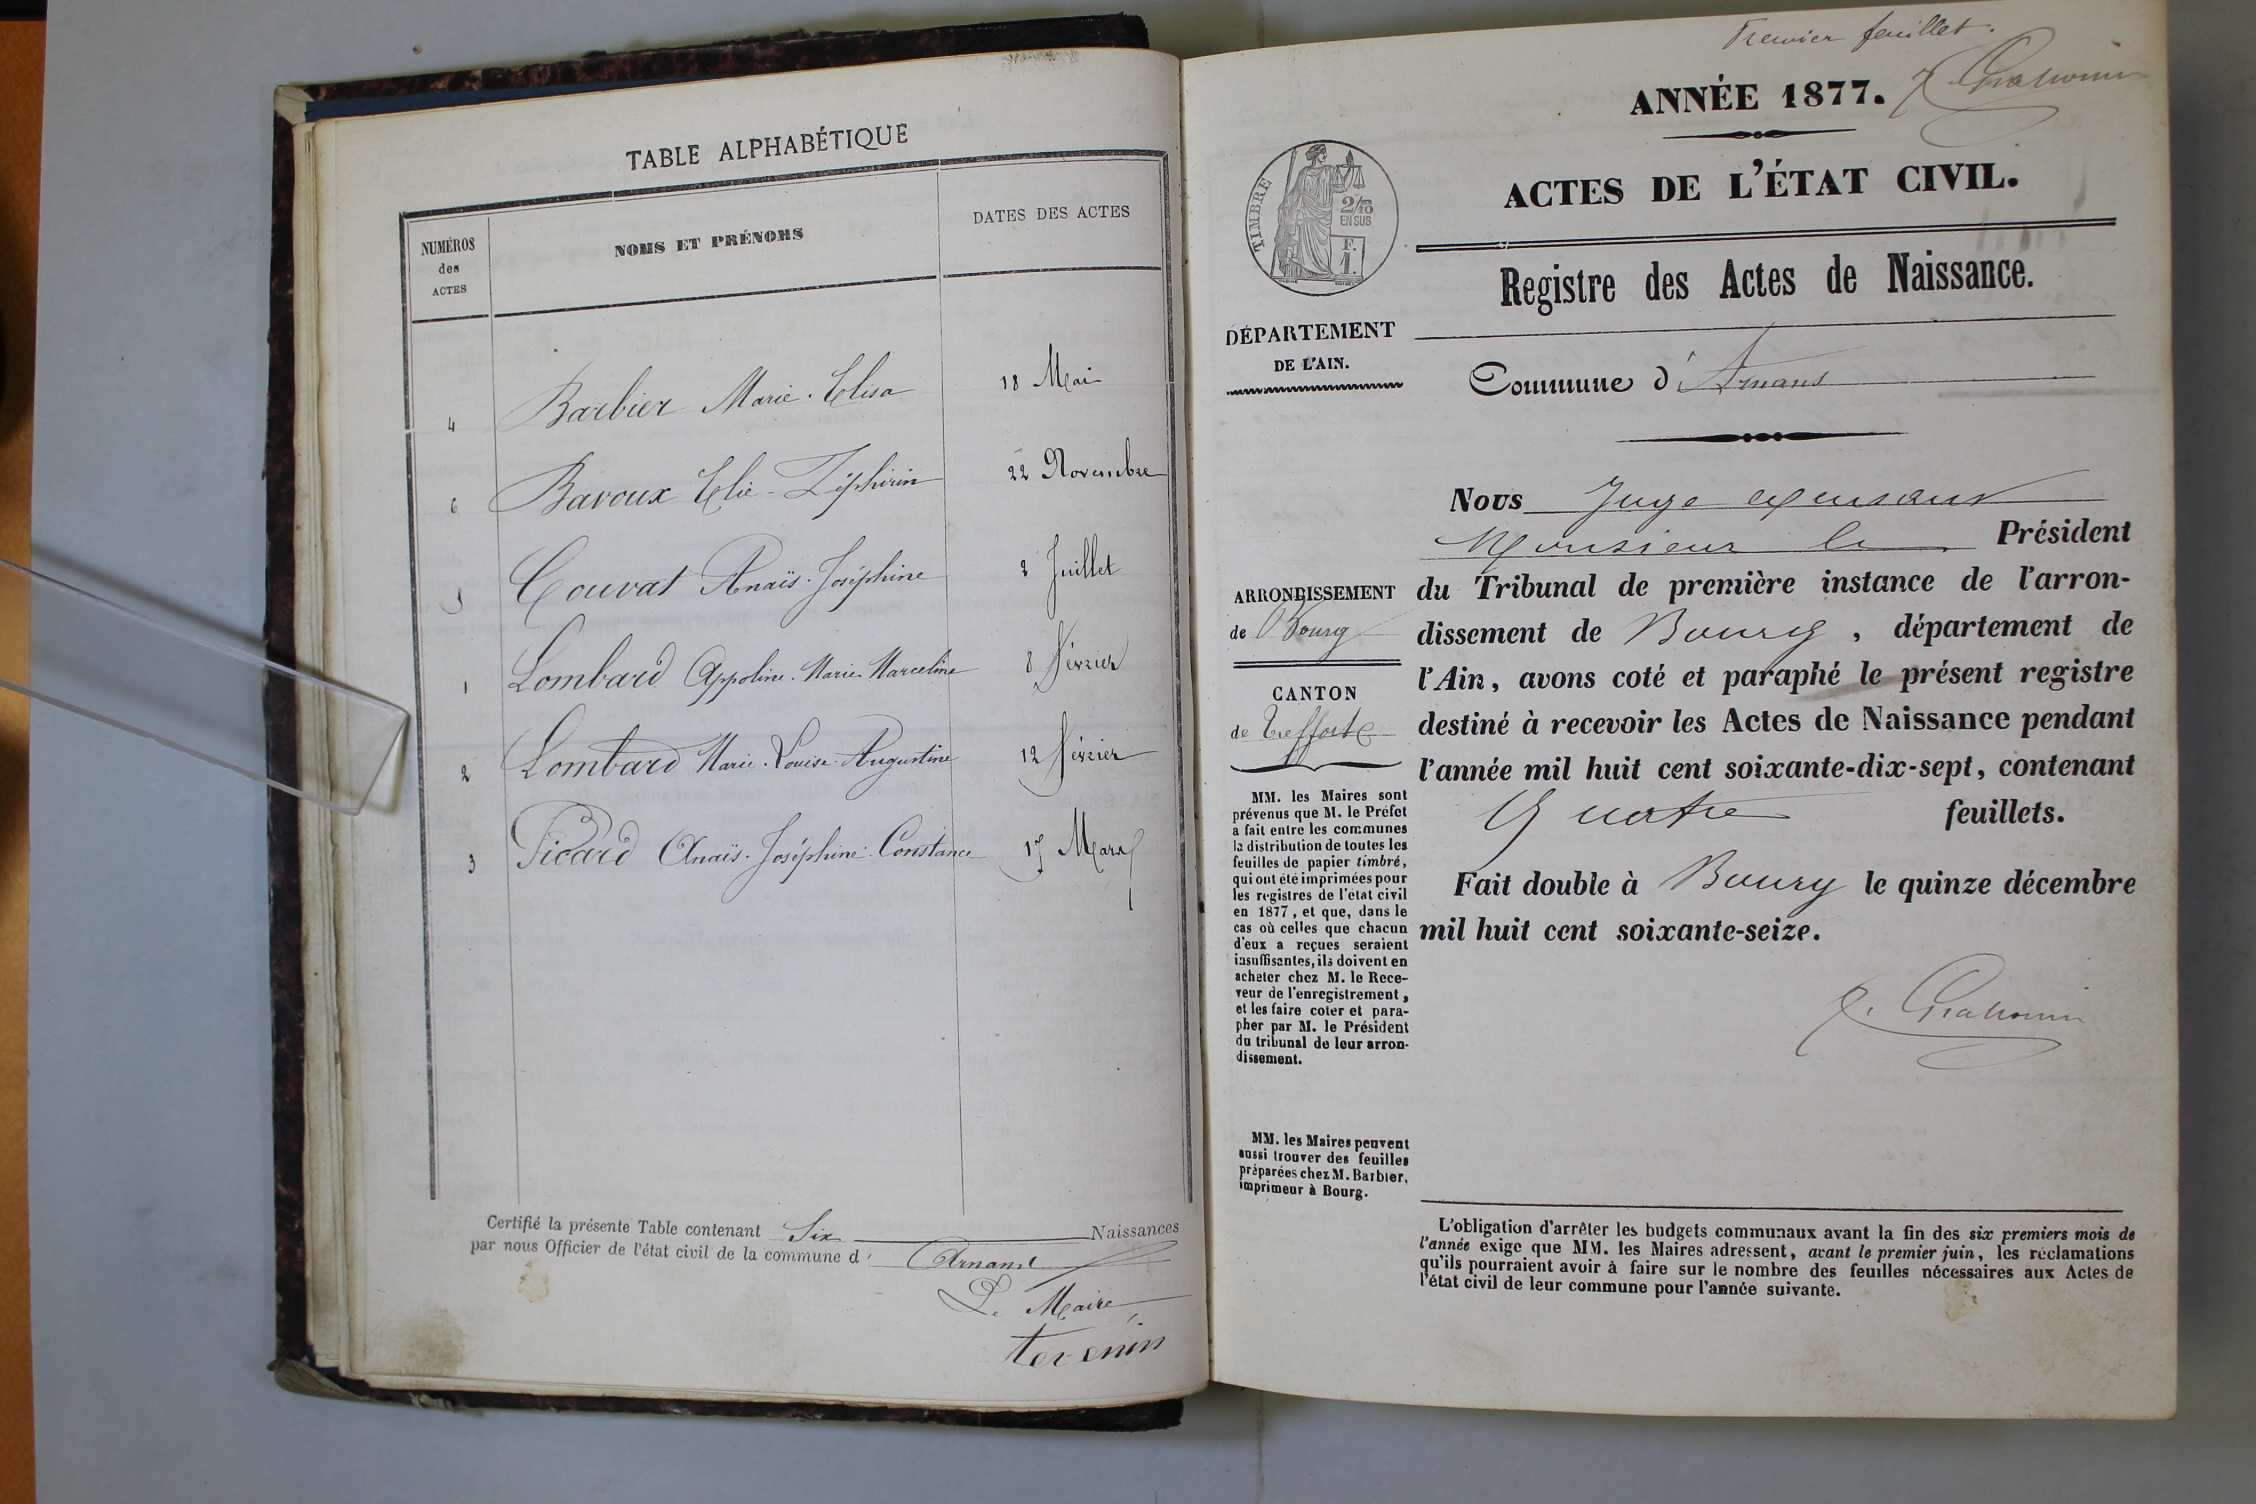 TABLE ALPHABÉTIQUE
NUMÉROS
des
ACTES
NOMS ET PRÉNOMS
DATES DES ACTES
4 Barbier Marie-Elisa 18 Mai
6 Bavoux Elie-Zéphirin 22 Novembre
5 Couvat Anaïs-Joséphine 2 Juillet
1 Lombard Appoline-Marie-Marceline 8 Février
2 Lombard Marie-Louise-Augustine 12 Février
3 Picard Anaïs-Joséphine-Constance 17 Mars
Certifié la présente Table contenant Six Naissances
par nous Officier de l'état civil de la commune d' Arnans
Le Maire
Premier feuillet.
ANNÉE 1877.
ACTES DE L'ÉTAT CIVIL.
TIMBRE
2/10
EN SUS
F.
1.
Registre des Actes de Naissance.
DÉPARTEMENT
DE L'AIN.
Commune d'Arnans
Nous Juge
Monsieur le Président
du Tribunal de première instance de l'arron-
dissement de Bourg, département de
l'Ain, avons coté et paraphé le présent registre
destiné à recevoir les Actes de Naissance pendant
l'année mil huit cent soixante-dix-sept, contenant
Quatre feuillets.
Fait double à Bourg le quinze décembre
mil huit cent soixante-seize.
ARRONDISSEMENT
de Bourg
CANTON
de Treffort
MM. les Maires sont
prévenus que M. le Préfet
a fait entre les communes
la distribution de toutes les
feuilles de papier timbré,
qui ont été imprimées pour
les registres de l'état civil
en 1877, et que, dans le
cas où celles que chacun
d'eux a reçues seraient
insuffisantes, ils doivent en
acheter chez M. le Rece-
veur de l'enregistrement,
et les faire coter et para-
pher par M. le Président
du tribunal de leur arron-
dissement.
MM. les Maires peuvent
aussi trouver des feuilles
préparées chez M. Barbier,
imprimeur à Bourg.
L'obligation d'arrêter les budgets communaux avant la fin des six premiers mois de
l'année exige que MM. les Maires adressent, avant le premier juin, les réclamations
qu'ils pourraient avoir à faire sur le nombre des feuilles nécessaires aux Actes de
l'état civil de leur commune pour l'année suivante.